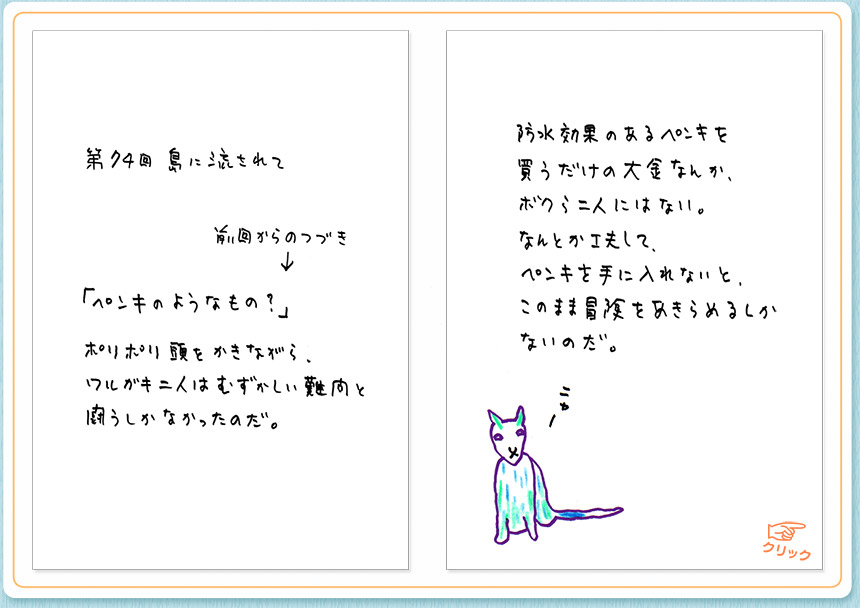 第74回 島に流されて
前回からのつづき
↓
「ペンキのようなもの？」
ポリポリ頭をかきながら、
ワルガキ二人はむずかしい難問と
闘うしかなかったのだ。
防水効果のあるペンキを
買うだけの大金なんか、
ボクら二人にはない。
なんとか工夫して、
ペンキを手に入れないと、
このまま冒険をあきらめるしか
ないのだ。
ニャー
クリック